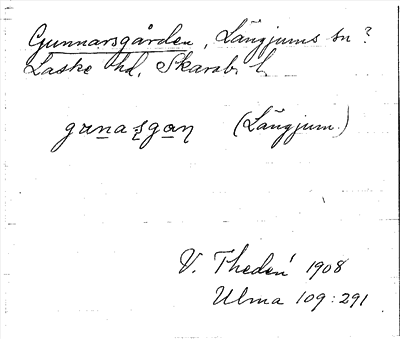 Gunnarsgården, Längjums sn?
Laske hd, Skarab. l.
gunasgan (Längjum.)
V. Thedén 1908
Ulma 109:291